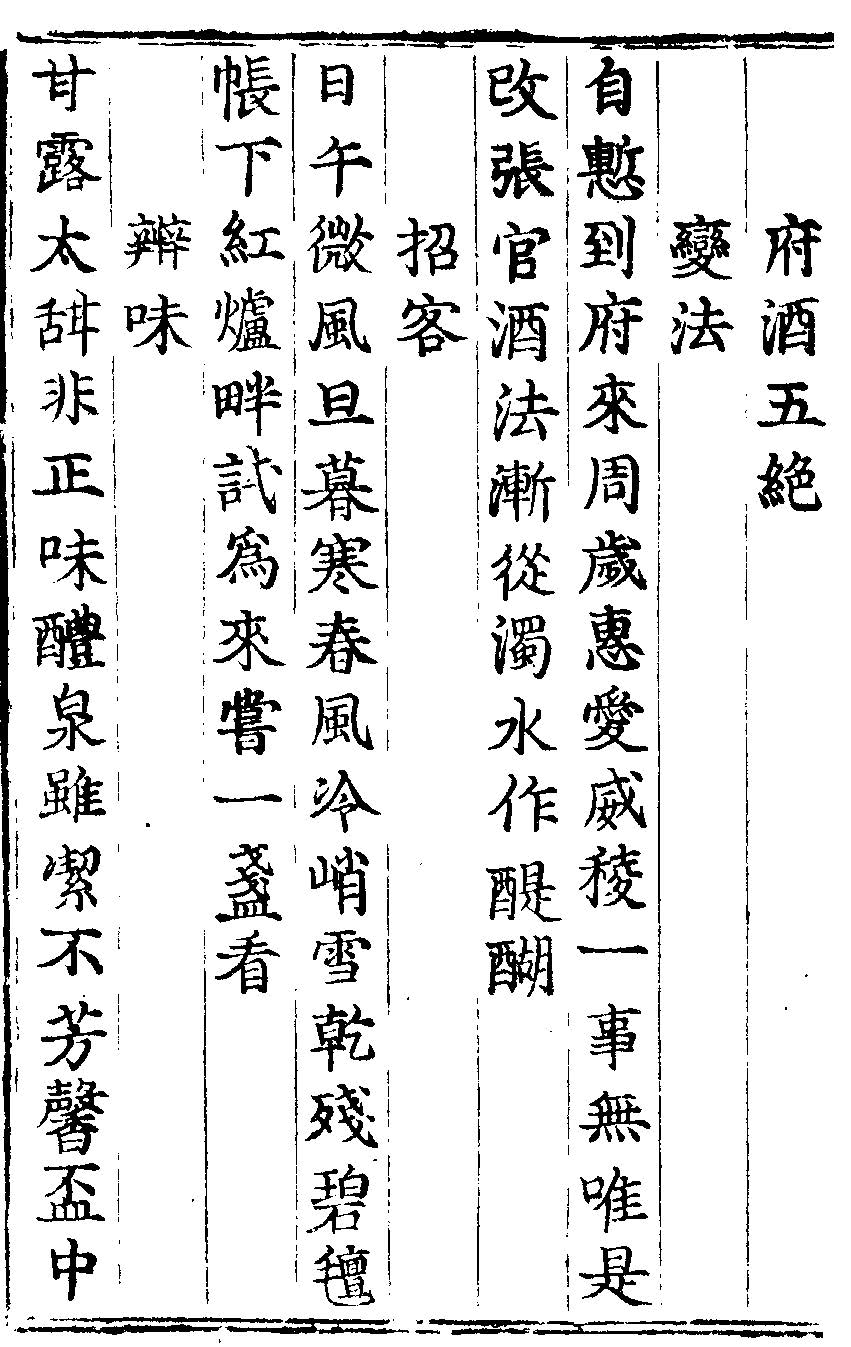 府酒五絶
變法
自慙到府來周歲惠愛威稜一事無唯是
改張官酒法漸從濁水作醍醐
招客
日午微風旦暮寒春風冷峭雪乾殘碧氊
帳下紅爐畔試爲來嘗一盞看
辨味
甘露太甜非正味醴泉雖潔不芳馨盃中